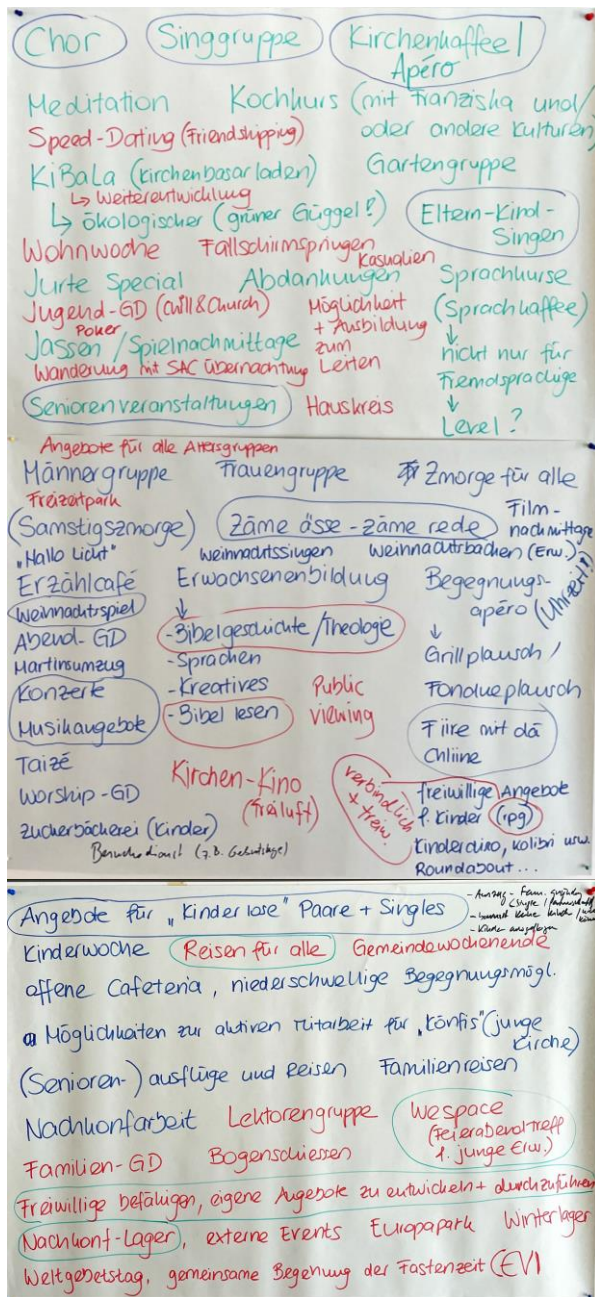 Chor Singgruppe Kirchenkaffee/
Apéro
Meditation Kochkurs (mit Franziska und/
Speed-Dating (Friendshipping) oder andere Kulturen)
KiBaLa (Kirchenbasarladen) Gartengruppe
↳ Weiterentwicklung
↳ ökologischer (grüner Güggel?) Eltern-Kind-
Singen
Wohnwoche Fallschirmspringen
Kasualien
Jurte Special Abdankungen Sprachkurse
Jugend-GD (Chill&Church) Möglichkeit (Sprachkaffee)
Poker + Ausbildung ↓
Jassen/Spielnachmittage zum nicht nur für
Wanderung mit SAC übernachtung Leiten Fremdsprachige
↓
Seniorenveranstaltungen Hauskreis Level?
Angebote für alle Altersgruppen
Männergruppe Frauengruppe Zmorge für alle
Freizeitpark Film-
(Samstigszmorge) Zäme ässe - zäme rede nachmittage
"Hallo Licht" Weihnachtssingen Weihnachtsbachen (Erw.)
Erzählcafé Erwachsenenbildung Begegnungs-
Weihnachtsspiel ↓ apéro (Uhrzeit?!)
Abend-GD -Bibelgeschichte/Theologie ↓
Martinsumzug -Sprachen Grillplausch/
Konzerte -Kreatives Public Fondueplausch
Musikangebote -Bibel lesen viewing Fiire mit dä
Chliine
Taizé Kirchen-Kino verbindlich freiwillige Angebote
Worship-GD (Freiluft) + freiw. f. Kinder (rpg)
Zuckerbäckerei (Kinder) Kinderkino, Kolibri usw.
Besuchsdienst (z.B. Geburtstage) Roundabout...
Angebote für "Kinderlose" Paare + Singles
Kinderwoche Reisen für alle Gemeindewochenende
offene Cafeteria, niederschwellige Begegnungsmögl.
Möglichkeiten zur aktiven Mitarbeit für "Konfis" (junge
Kirche)
(Senioren-) ausflüge und Reisen Familienreisen
Nachkonfarbeit Lektorengruppe Wespace
(Feierabendtreff
Familien-GD Bogenschiessen f. junge Erw.)
Freiwillige befähigen, eigene Angebote zu entwickeln + durchzuführen
Nachkonf-Lager, externe Events Europapark Winterlager
Weltgebetstag, gemeinsame Begehung der Fastenzeit (EVI